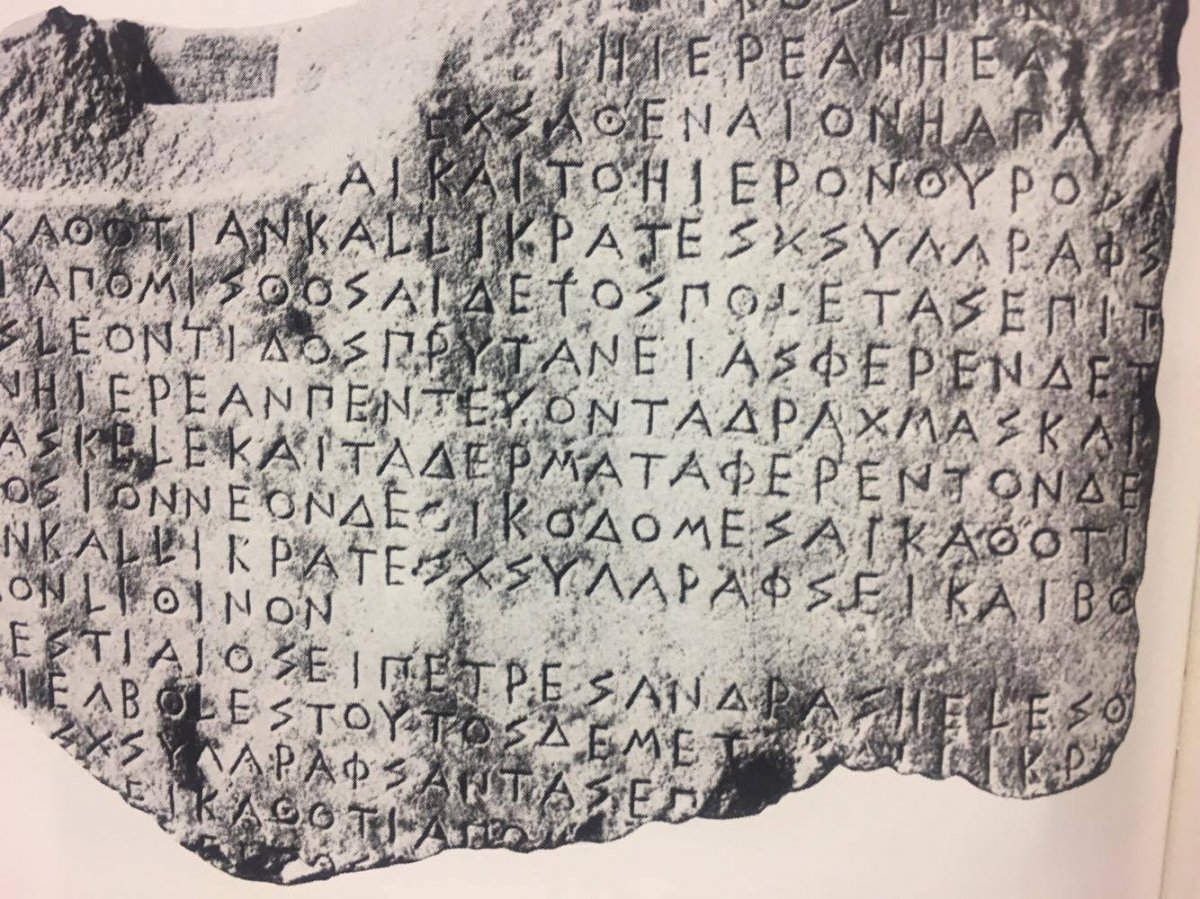 ΙΗΙΕΡΕΑΝΗΕΑ
ΕΧSΑΘΕΝΑΙΟΝΗΑΠΑ
ΑΙΚΑΙΤΟΗΙΕΡΟΝΘΥΡΟSΑ
ΚΑΘΟΤΙΑΝΚΑLLΙΚΡΑΤΕSΧSΥΛΛΡΑΦS
ΙΑΠΟΜΙSΘΟSΑΙΔΕΤΟSΠΟLΕΤΑSΕΠΙΤ
SLΕΟΝΤΙΔΟSΠΡΥΤΑΝΕΙΑSΦΕΡΕΝΔΕΤ
ΝΗΙΕΡΕΑΝΠΕΝΤΕΚΟΝΤΑΔΡΑΧΜΑSΚΑΙ
ΑSΚΕLΕΚΑΙΤΑΔΕΡΜΑΤΑΦΕΡΕΝΤΟΝΔΕ
ΟSΙΟΝΝΕΟΝΔΕΟΙΚΟΔΟΜΕSΑΙΚΑΘΟΤΙ
ΝΚΑLLΙΚΡΑΤΕSΧSΥΛΛΡΑΦSΕΙΚΑΙΒΟ
ΟΝLΙΘΙΝΟΝ
ΕSΤΙΑΙΟSΕΙΠΕΤΡΕSΑΝΔΡΑSΗΕLΕSΘ
ΙΕΛΒΟLΕSΤΟΥΤΟSΔΕΜΕΤ LLΙΚΡΑ
SΧSΥΛΛΡΑΦSΑΝΤΑSΕΠ
ΕΙΚΑΘΟΤΙΑΠΟ